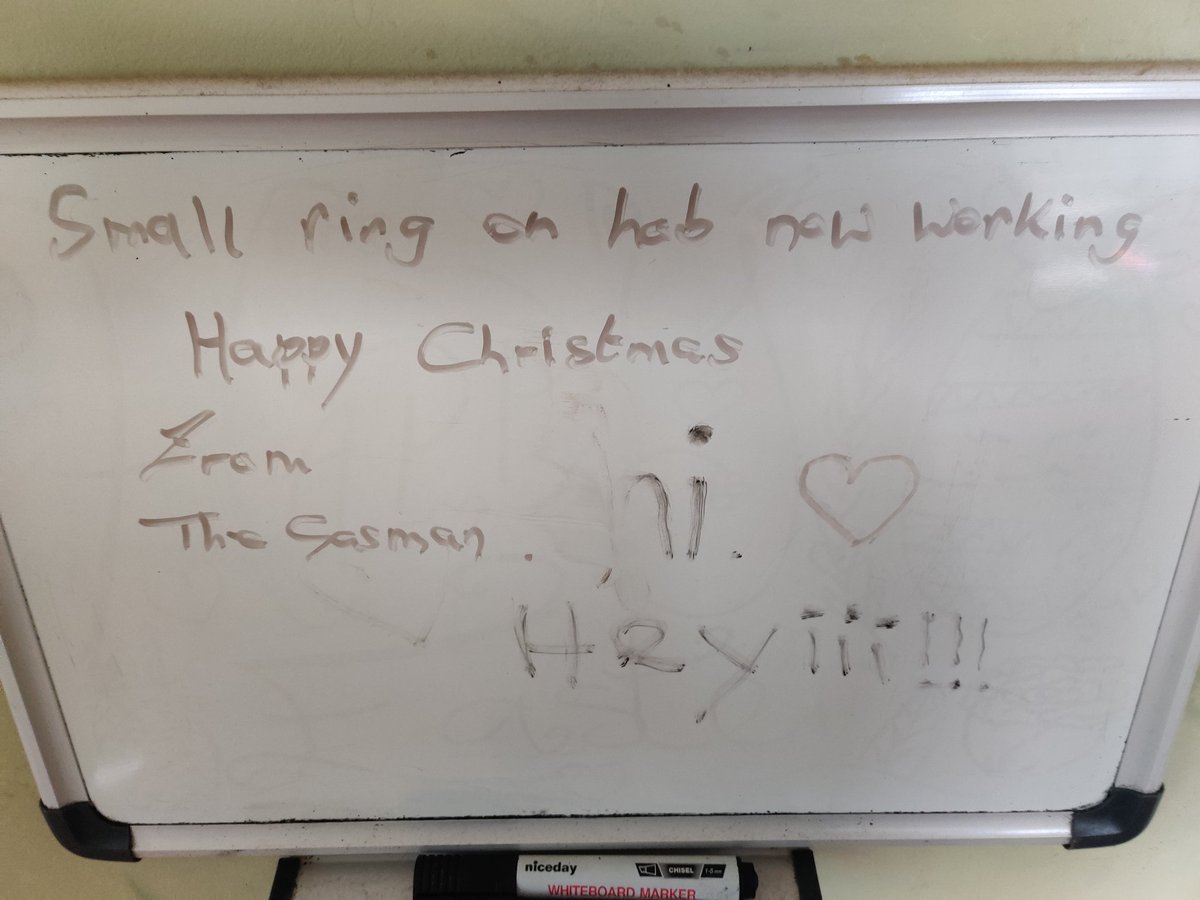 Small ring on hob now working
Happy Christmas
From
The Gasman.
hi.
Heyiii!!!
niceday
CHISEL 1-5 mm
WHITEBOARD MARKER